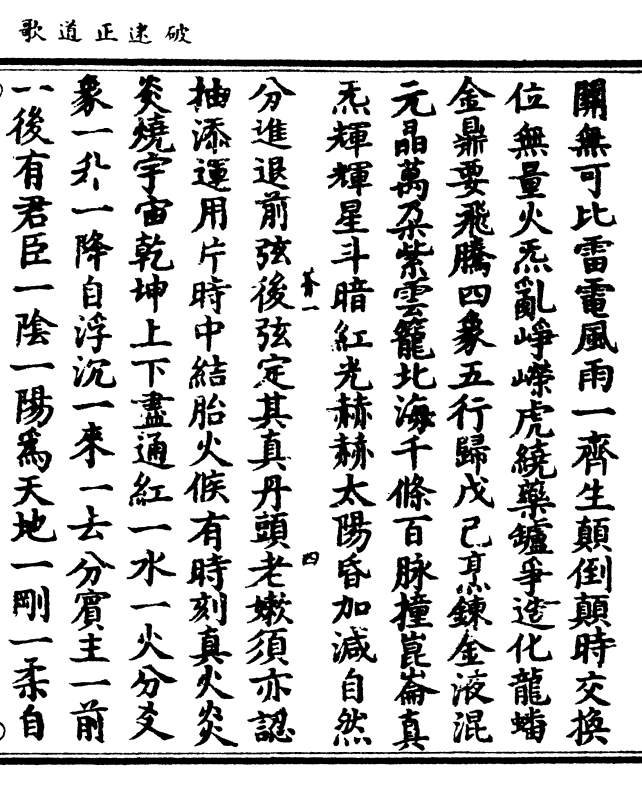 破迷正道歌
關無可比雷電風雨一齊生顛倒顛時交換
位無量火炁亂崢嶸虎繞藥鑪爭造化龍蟠
金鼎要飛騰四象五行歸戊己烹鍊金液混
元晶萬朵紫雲籠北海千條百脉撞崑崙真
炁輝輝星斗暗紅光赫赫太陽昏加減自然
卷一
四
分進退前弦後弦定其真丹頭老嫰須亦認
抽添運用片時中結胎火候有時刻真火炎
炎燒宇宙乾坤上下盡通紅一水一火分爻
象一升一降自浮沉一來一去分賓主一前
一後有君臣一陰一陽爲天地一剛一柔自